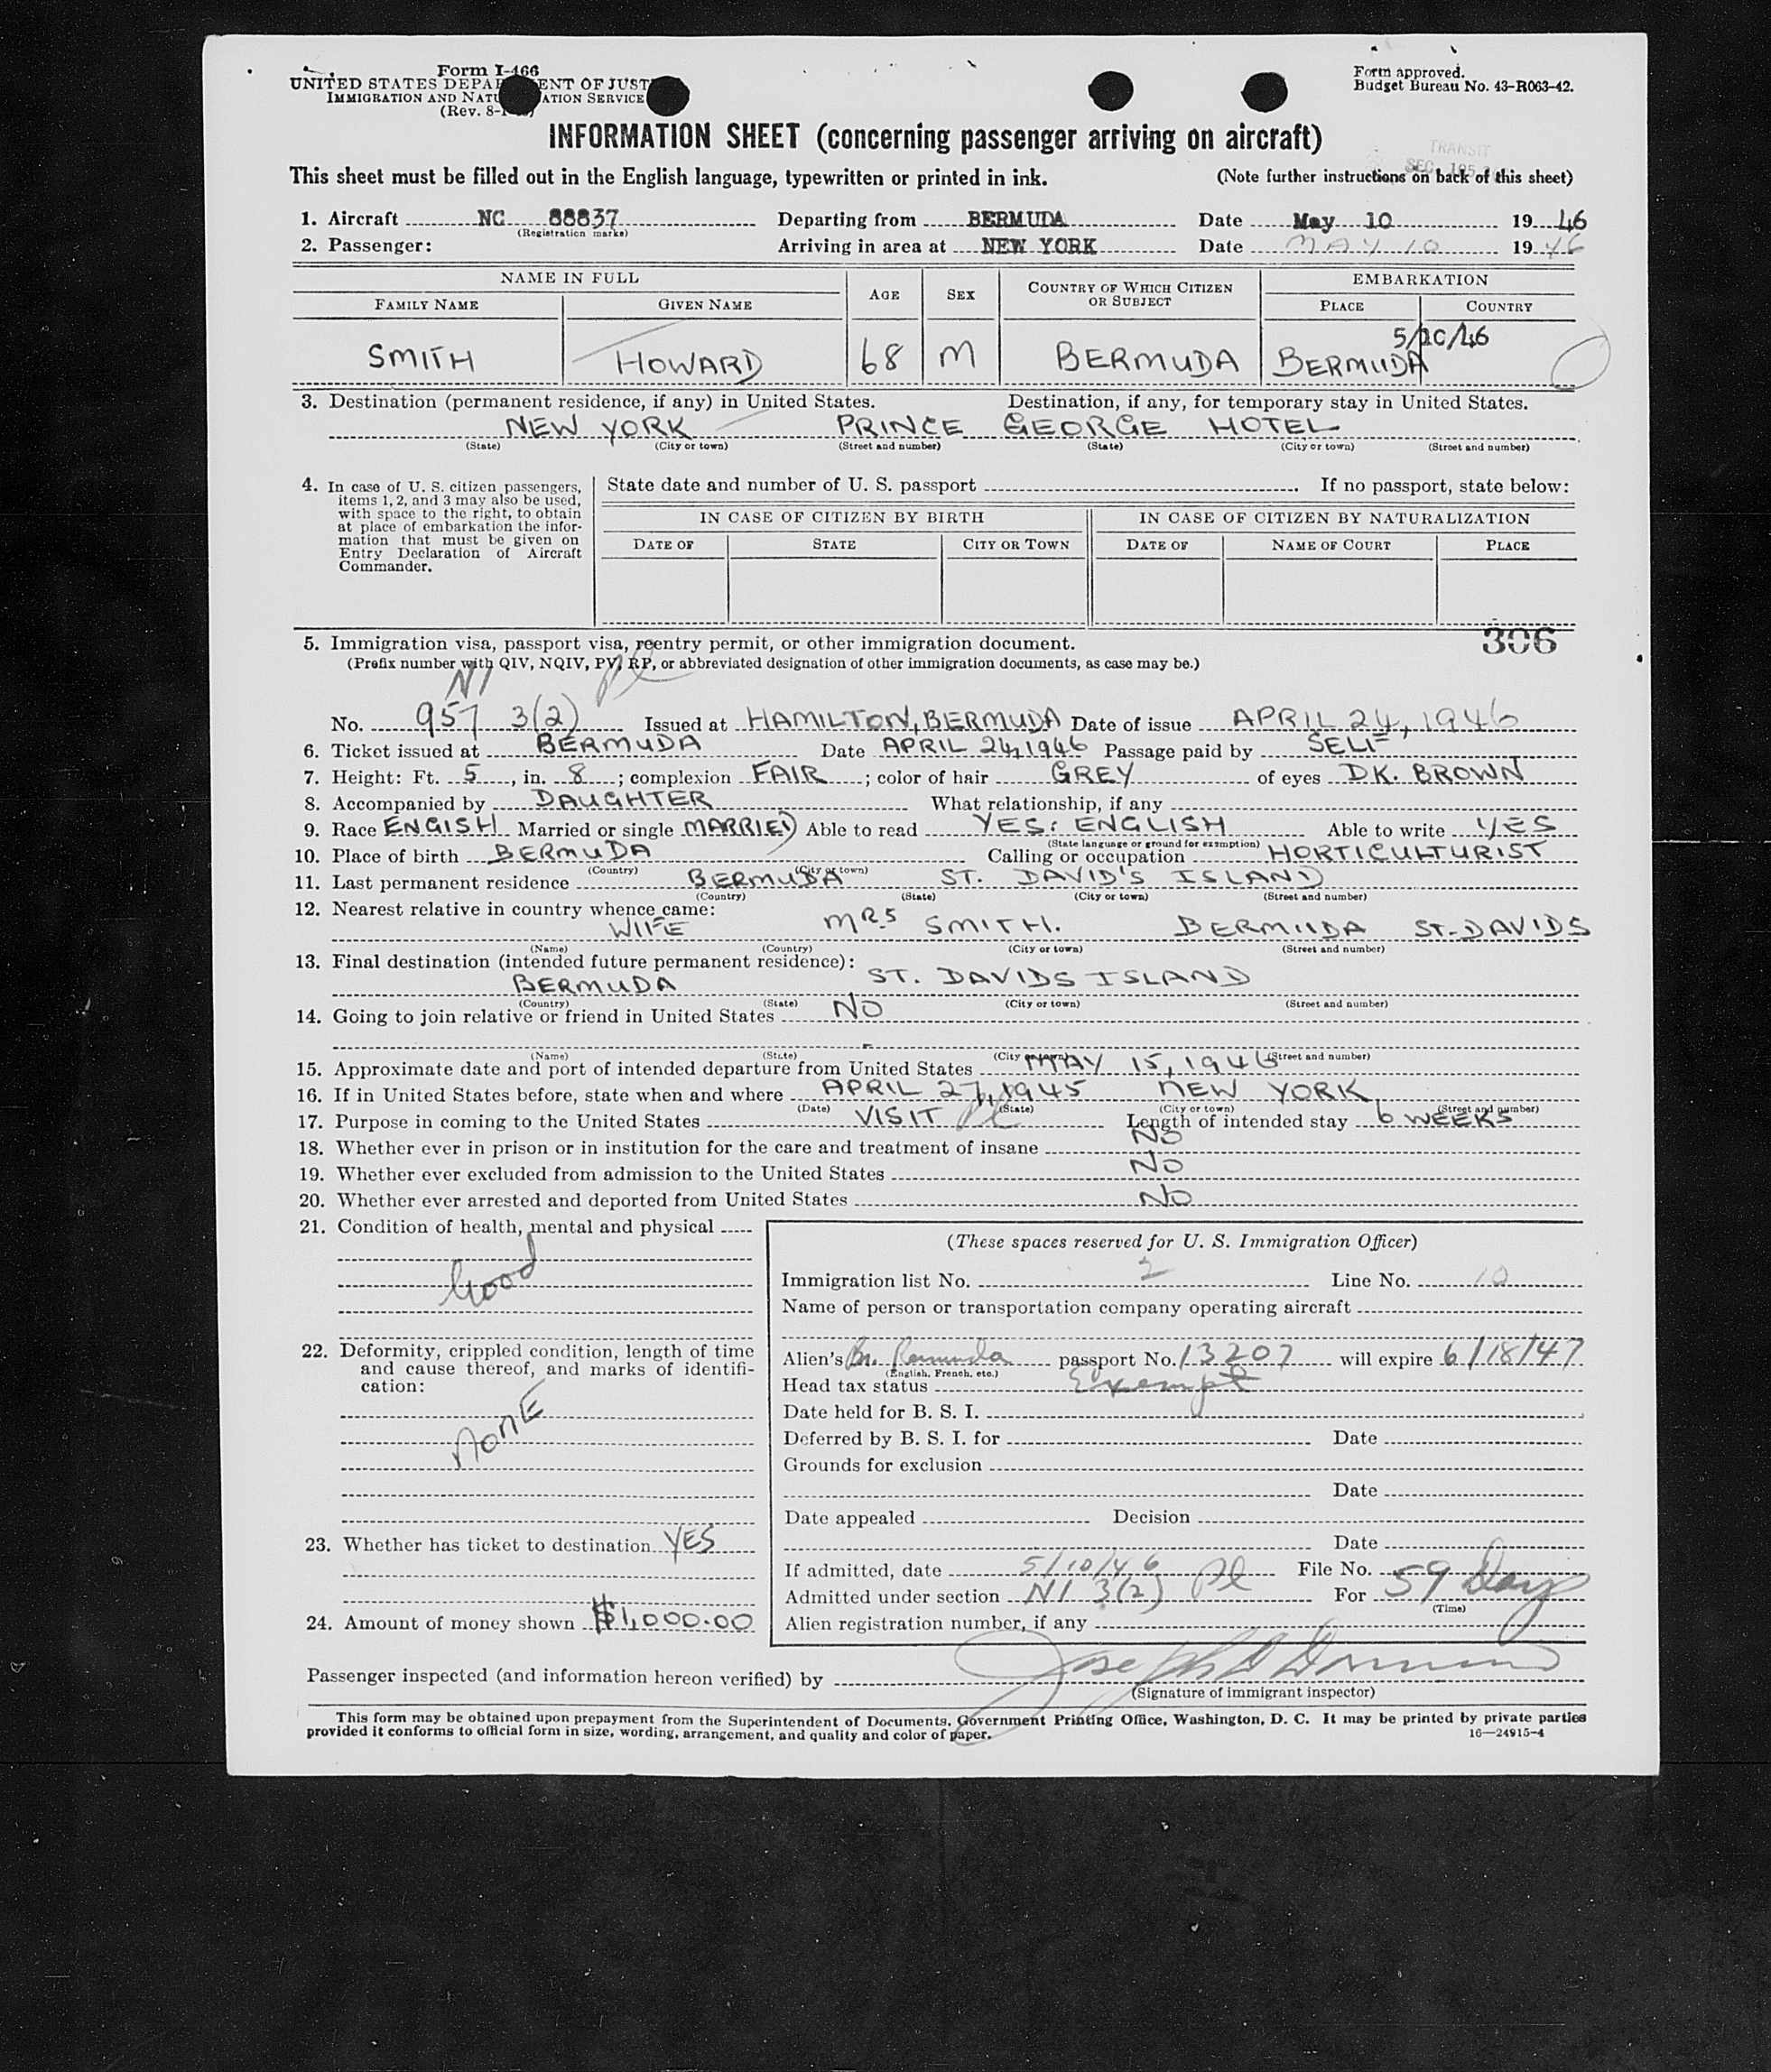 Form I-466
UNITED STATES DEPA ENT OF JUST
IMMIGRATION AND NATU ATION SERVICE
(Rev. 8-
Form approved.
Budget Bureau No. 43-R063-42.
INFORMATION SHEET (concerning passenger arriving on aircraft)
TRANSIT
SEC.
This sheet must be filled out in the English language, typewritten or printed in ink. (Note further instructions on back of this sheet)
1. Aircraft NC 88837 Departing from BERMUDA Date May 10 1946
(Registration marks)
2. Passenger: Arriving in area at NEW YORK Date MAY 10 1946
NAME IN FULL AGE SEX COUNTRY OF WHICH CITIZEN OR SUBJECT EMBARKATION
FAMILY NAME GIVEN NAME PLACE COUNTRY
5/10/46
SMITH HOWARD 68 M BERMUDA BERMUDA
3. Destination (permanent residence, if any) in United States. Destination, if any, for temporary stay in United States.
NEW YORK PRINCE GEORGE HOTEL
(State) (City or town) (Street and number) (State) (City or town) (Street and number)
4. In case of U. S. citizen passengers, items 1, 2, and 3 may also be used, with space to the right, to obtain at place of embarkation the information that must be given on Entry Declaration of Aircraft Commander.
State date and number of U. S. passport . If no passport, state below:
IN CASE OF CITIZEN BY BIRTH IN CASE OF CITIZEN BY NATURALIZATION
DATE OF STATE CITY OR TOWN DATE OF NAME OF COURT PLACE
306
5. Immigration visa, passport visa, reentry permit, or other immigration document.
(Prefix number with QIV, NQIV, PV, RP, or abbreviated designation of other immigration documents, as case may be.)
NI
No. 957 3(2) Issued at HAMILTON, BERMUDA Date of issue APRIL 24, 1946
6. Ticket issued at BERMUDA Date APRIL 24, 1946 Passage paid by SELF
7. Height: Ft. 5, in. 8; complexion FAIR; color of hair GREY of eyes DK. BROWN
8. Accompanied by DAUGHTER What relationship, if any
9. Race ENGISH Married or single MARRIED Able to read YES: ENGLISH Able to write YES
(State language or ground for exemption)
10. Place of birth BERMUDA Calling or occupation HORTICULTURIST
(Country) (City or town)
11. Last permanent residence BERMUDA ST. DAVID'S ISLAND
(Country) (State) (City or town) (Street and number)
12. Nearest relative in country whence came:
WIFE MRS SMITH. BERMUDA ST. DAVIDS
(Name) (Country) (City or town) (Street and number)
13. Final destination (intended future permanent residence):
BERMUDA ST. DAVIDS ISLAND
(Country) (State) (City or town) (Street and number)
14. Going to join relative or friend in United States NO
(Name) (State) (City or town) (Street and number)
15. Approximate date and port of intended departure from United States MAY 15, 1946
16. If in United States before, state when and where APRIL 27, 1945 NEW YORK
(Date) (State) (City or town) (Street and number)
17. Purpose in coming to the United States VISIT Length of intended stay 6 WEEKS
18. Whether ever in prison or in institution for the care and treatment of insane NO
19. Whether ever excluded from admission to the United States NO
20. Whether ever arrested and deported from United States NO
21. Condition of health, mental and physical
Good
22. Deformity, crippled condition, length of time and cause thereof, and marks of identification:
NONE
23. Whether has ticket to destination YES
24. Amount of money shown $1,000.00
(These spaces reserved for U. S. Immigration Officer)
Immigration list No. 2 Line No. 10
Name of person or transportation company operating aircraft
Alien's Br. Bermuda passport No. 13207 will expire 6/18/47
(English, French, etc.)
Head tax status Exempt
Date held for B. S. I.
Deferred by B. S. I. for Date
Grounds for exclusion
Date
Date appealed Decision
Date
If admitted, date 5/10/46 File No.
Admitted under section NI 3(2) For 59 Days
(Time)
Alien registration number, if any
Passenger inspected (and information hereon verified) by Joseph
(Signature of immigrant inspector)
This form may be obtained upon prepayment from the Superintendent of Documents, Government Printing Office, Washington, D. C. It may be printed by private parties
provided it conforms to official form in size, wording, arrangement, and quality and color of paper. 16—24915-4